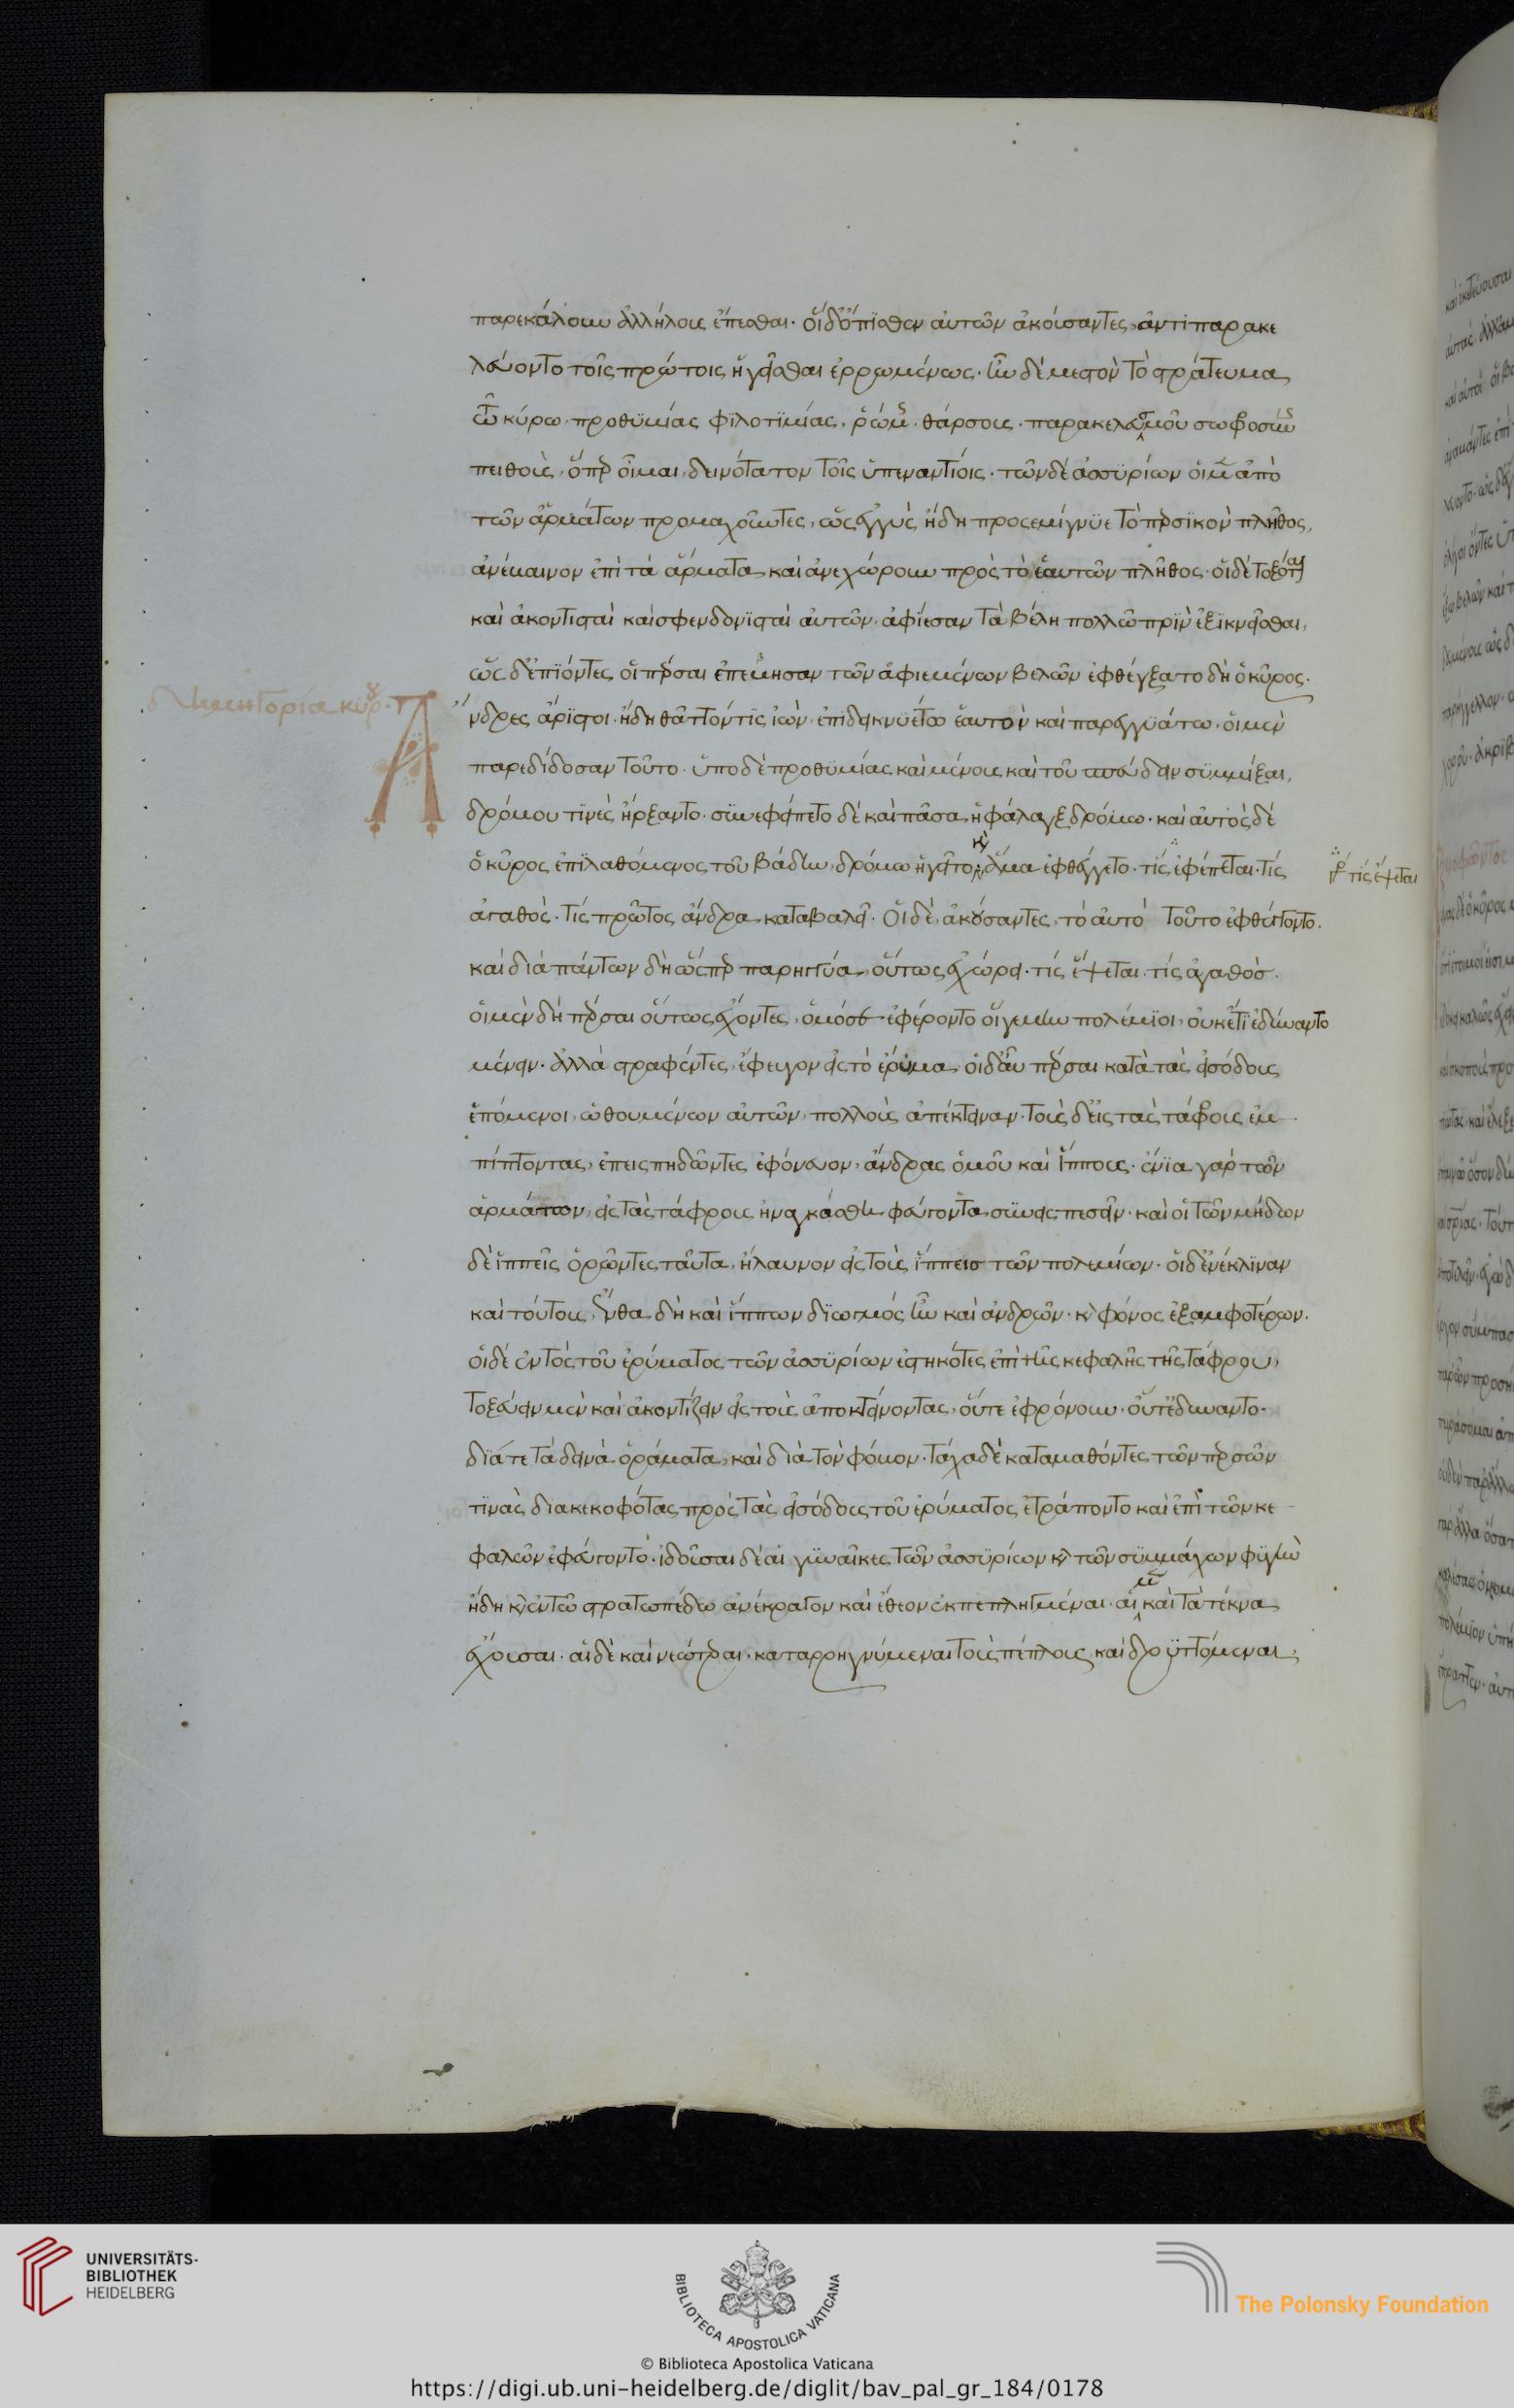 παρεκάλουν ἀλλήλους ἕπεσθαι. οἱ δ' ὄπισθεν αὐτῶν ἀκούσαντες, ἀντιπαρακε
λεύοντο τοῖς πρώτοις ἡγεῖσθαι ἐρρωμένως. ἦν δὲ μεστὸν τὸ στράτευμα
τῶ κύρω. προθυμίας φιλοτιμίας, ῥώμης. θάρσους. παρακελευσμοῦ σωφροσύνης
πειθοῦς, ὅπερ οἶμαι, δεινότατον τοῖς ὑπεναντίοις. τῶν δὲ ἀσσυρίων οἱ μὲν ἀπὸ
τῶν ἁρμάτων προμαχοῦντες, ὡς ἐγγὺς ἤδη προσεμίγνυε τὸ περσικὸν πλῆθος,
ἀνέβαινον ἐπὶ τὰ ἅρματα καὶ ἀνεχώρουν πρὸς τὸ ἑαυτῶν πλῆθος. οἱ δὲ τοξόται
καὶ ἀκοντισταὶ καὶ σφενδονισταὶ αὐτῶν, ἀφίεσαν τὰ βέλη πολλῶ πρὶν ἐξικνεῖσθαι,
ὡς δ' ἐπιόντες οἱ πέρσαι ἐπέβησαν τῶν ἀφιεμένων βελῶν ἐφθέγξατο δὴ ὁ κῦρος.
δημηγορία κύρου.
Ἄνδρες ἄριστοι. ἤδη θᾶττόν τις ἰὼν, ἐπιδεικνυέτω ἑαυτὸν καὶ παρεγγυάτω. οἱ μὲν
παρεδίδοσαν τοῦτο. ὑπὸ δὲ προθυμίας καὶ μένους καὶ τοῦ σπεύδειν συμμίξαι,
δρόμου τινὲς ἤρξαντο. συνεφείπετο δὲ καὶ πᾶσα ἡ φάλαγξ δρόμω. καὶ αὐτὸς δὲ
ὁ κῦρος ἐπιλαθόμενος τοῦ βάδην, δρόμω ἡγεῖτο, καὶ ἅμα ἐφθέγγετο. τίς ἐφέπεται. τίς
γρ τίς ἕψεται
ἀγαθὸς. τίς πρῶτος ἄνδρα καταβαλεῖ. οἱ δὲ, ἀκούσαντες, τὸ αὐτὸ τοῦτο ἐφθέγγοντο.
καὶ διὰ πάντων δὴ ὥσπερ παρηγγύα, οὕτως ἐχώρει. τίς ἕψεται. τίς ἀγαθός.
οἱ μὲν δὴ πέρσαι οὕτως ἔχοντες, ὁμόσε ἐφέροντο οἵ γε μὴν πολέμιοι, οὐκέτι ἐδύναντο
μένειν. ἀλλὰ στραφέντες, ἔφευγον εἰς τὸ ἔρυμα. οἱ δ' αὖ πέρσαι κατὰ τὰς εἰσόδους
ἑπόμενοι, ὠθουμένων αὐτῶν, πολλοὺς ἀπέκτειναν. τοὺς δ' εἰς τὰς τάφρους ἐμ
πίπτοντας, ἐπεισπηδῶντες ἐφόνευον, ἄνδρας ὁμοῦ καὶ ἵππους. ἔνια γὰρ τῶν
ἁρμάτων, εἰς τὰς τάφρους ἠναγκάσθη φεύγοντα συνεισπεσεῖν. καὶ οἱ τῶν μήδων
δὲ ἱππεῖς ὁρῶντες ταῦτα, ἤλαυνον εἰς τοὺς ἵππεισ τῶν πολεμίων. οἱ δ' ἐνέκλιναν
καὶ τούτους, ἔνθα δὴ καὶ ἵππων διωγμός ἦν καὶ ἀνδρῶν. καὶ φόνος ἐξ ἀμφοτέρων.
οἱ δὲ ἐντὸς τοῦ ἐρύματος τῶν ἀσσυρίων ἑστηκότες ἐπὶ τῆς κεφαλῆς τῆς τάφρου,
τοξεύειν μὲν καὶ ἀκοντίζειν εἰς τοὺς ἀποκτείνοντας, οὔτε ἐφρόνουν. οὔτ' ἐδύναντο.
διά τε τὰ δεινὰ ὁράματα, καὶ διὰ τὸν φόβον. τάχα δὲ καταμαθόντες τῶν περσῶν
τινὰς διακεκοφότας πρὸς τὰς εἰσόδους τοῦ ἐρύματος ἐτράποντο καὶ ἐπὶ τῶν κε
φαλῶν ἐφεύγοντο. ἰδοῦσαι δὲ αἱ γυναῖκες τῶν ἀσσυρίων καὶ τῶν συμμάχων φυγὴν
ἤδη καὶ ἐν τῶ στρατοπέδω ἀνέκραγον καὶ ἔθεον ἐκπεπληγμέναι. αἱ μὲν καὶ τὰ τέκνα
ἔχουσαι. αἱ δὲ καὶ νεώτεραι, καταρρηγνύμεναι τοὺς πέπλους, καὶ δρυπτόμεναι,
UNIVERSITÄTS-
BIBLIOTHEK
HEIDELBERG
BIBLIOTECA APOSTOLICA VATICANA
The Polonsky Foundation
© Biblioteca Apostolica Vaticana
https://digi.ub.uni-heidelberg.de/diglit/bav_pal_gr_184/0178